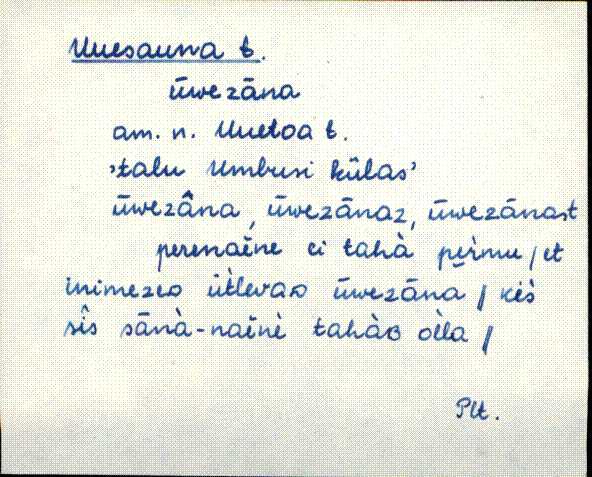 Uuesauna t.
ūwezāna
am. n. Uuetoa t.
'talu Umbusi külas'
ūwezâna, ūwezānaz, ūwezānast
perenaĩne ei tahà peŕmu / et
inimezeᴅ ütlevaᴅ ūwezāna / kès
sîs sānà-naĩnè tahàʙ òlla /
Plt.